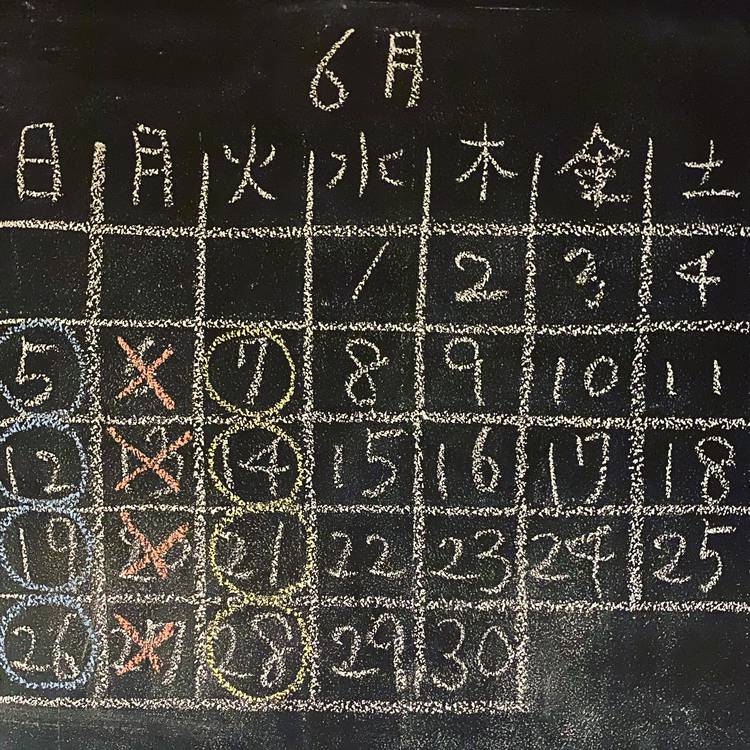 6月
日 月 火 水 木 金 土
1 2 3 4
5 6 7 8 9 10 11
12 13 14 15 16 17 18
19 20 21 22 23 24 25
26 27 28 29 30